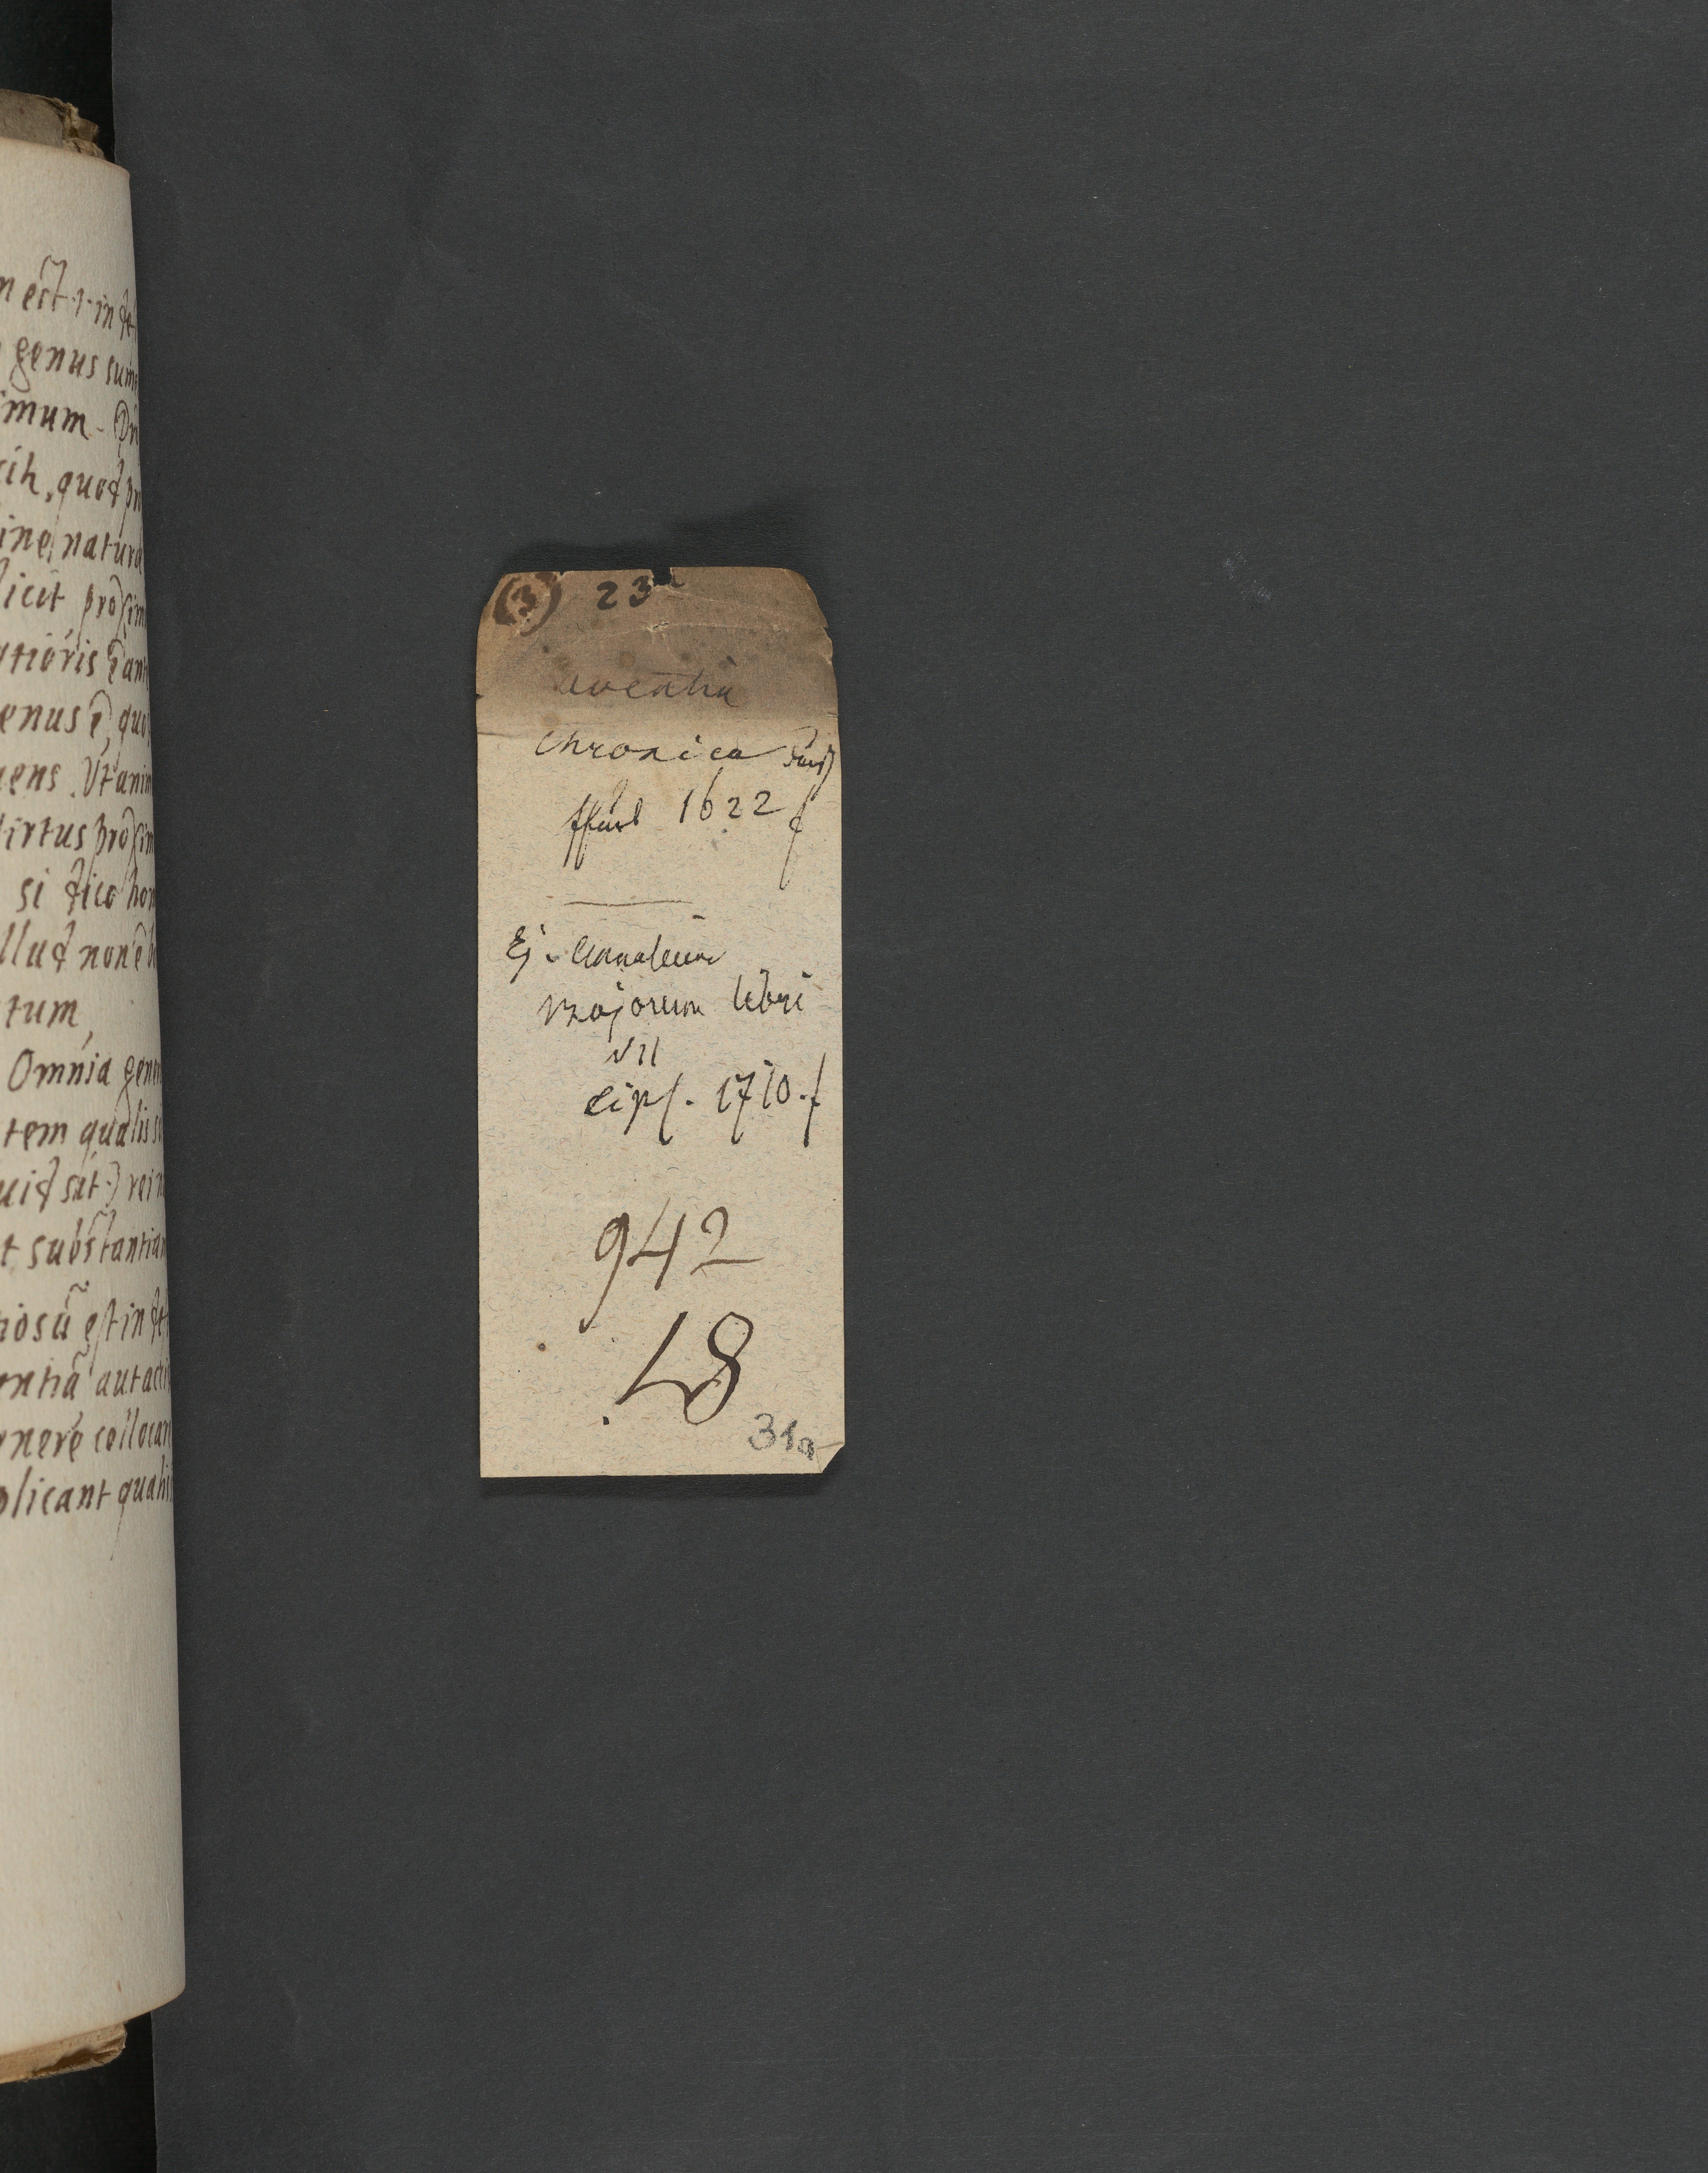 n est .1. in de
genus sum
imum.
cih, quod pr
ine, natura
licit, proxim
atioris ē an
enus ē, quo
uens. Ut anim
Virtus proxim
si dico hom
llud non ē h
tum,
Omnia gene
tem qualis s
uid sit) rei n
t substantiam
iosū est in de
ntiā aut acci
nere collocan
plicant quali
(3) 23
Aventin
Chronica
ffurt 1622 f
Ej. Annalium
Majorum libri
VII
Lips. 1710. f
942
48
31a